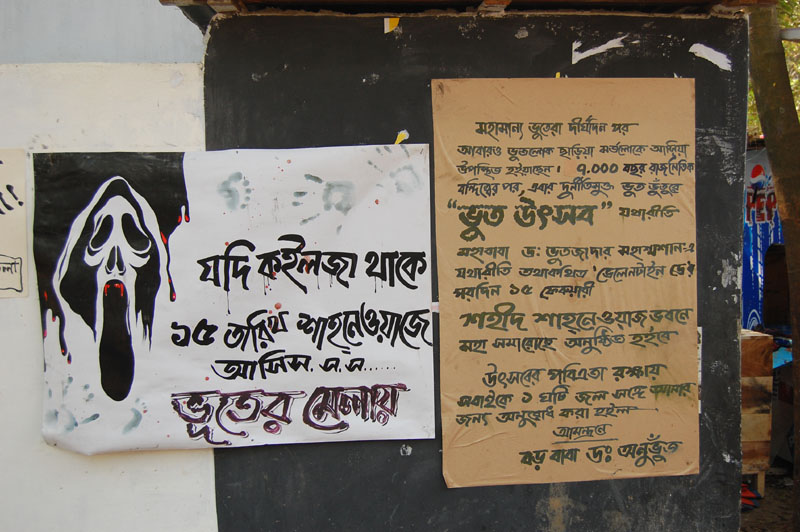 যদি কইলজা থাকে
১৫ তারিখ শাহনেওয়াজে
আসিস. স.স......
ভূতের মেলায়
মহামান্য ভূতেরা দীর্ঘদিন পর
আবারও ভূতলোক ছাড়িয়া মর্তলোকে আসিয়া
উপস্থিত হইয়াছেন। ৭.০০০ বছর রাজনৈতিক
বন্দিত্বের পর, এবার দুর্নীতিমুক্ত ভূত
"ভূত উৎসব" যথারীতি
মহাবাবা ড: ভূতজাদার মহাশ্মশান-এ
যথারীতি তথাকথিত 'ভেলেনটাইন ডে'র
পরদিন ১৫ ফেব্রুয়ারী
শহীদ শাহনেওয়াজ ভবনে
মহা সমারোহে অনুষ্ঠিত হইবে
উৎসবের পবিত্রতা রক্ষায়
সবাইকে ১ ঘটি জল সঙ্গে আনার
জন্য অনুরোধ করা হইল
আমন্ত্রণে
বড় বাবা ডঃ অনুভূঁত